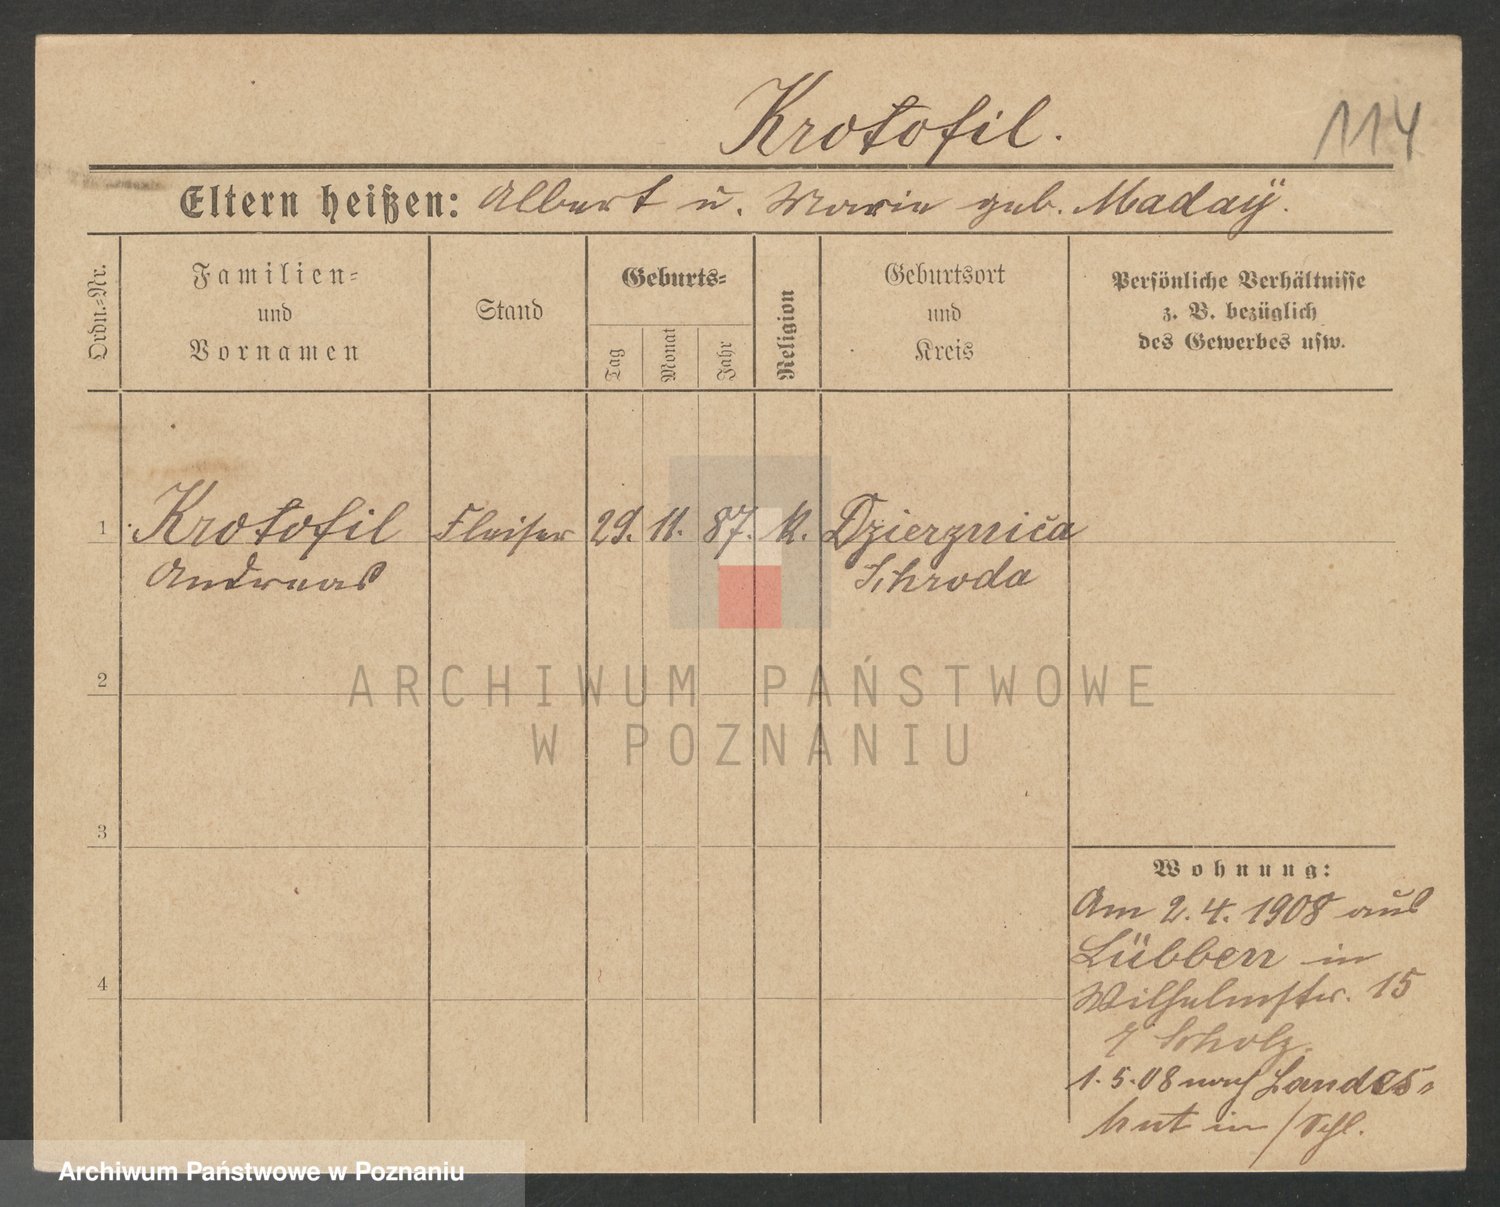 Krotofil.
114
Eltern heißen: Albert u. Marie geb. Maday.
Ordn.-Nr.
Familien-
und
Vornamen
Stand
Geburts-
Tag
Monat
Jahr
Religion
Geburtsort
und
Kreis
Persönliche Verhältnisse
z. B. bezüglich
des Gewerbes usw.
1 Krotofil 29. 11. 87. K. Dzierznica
Andreas Schroda
2
ARCHIWUM PAŃSTWOWE
W POZNANIU
3
Wohnung:
Am 2.4.1908 aus
Lübben in
4
Wilhelmstr. 15
Scholz.
1.5.08 nach Landes-
hut in /Schl.
Archiwum Państwowe w Poznaniu